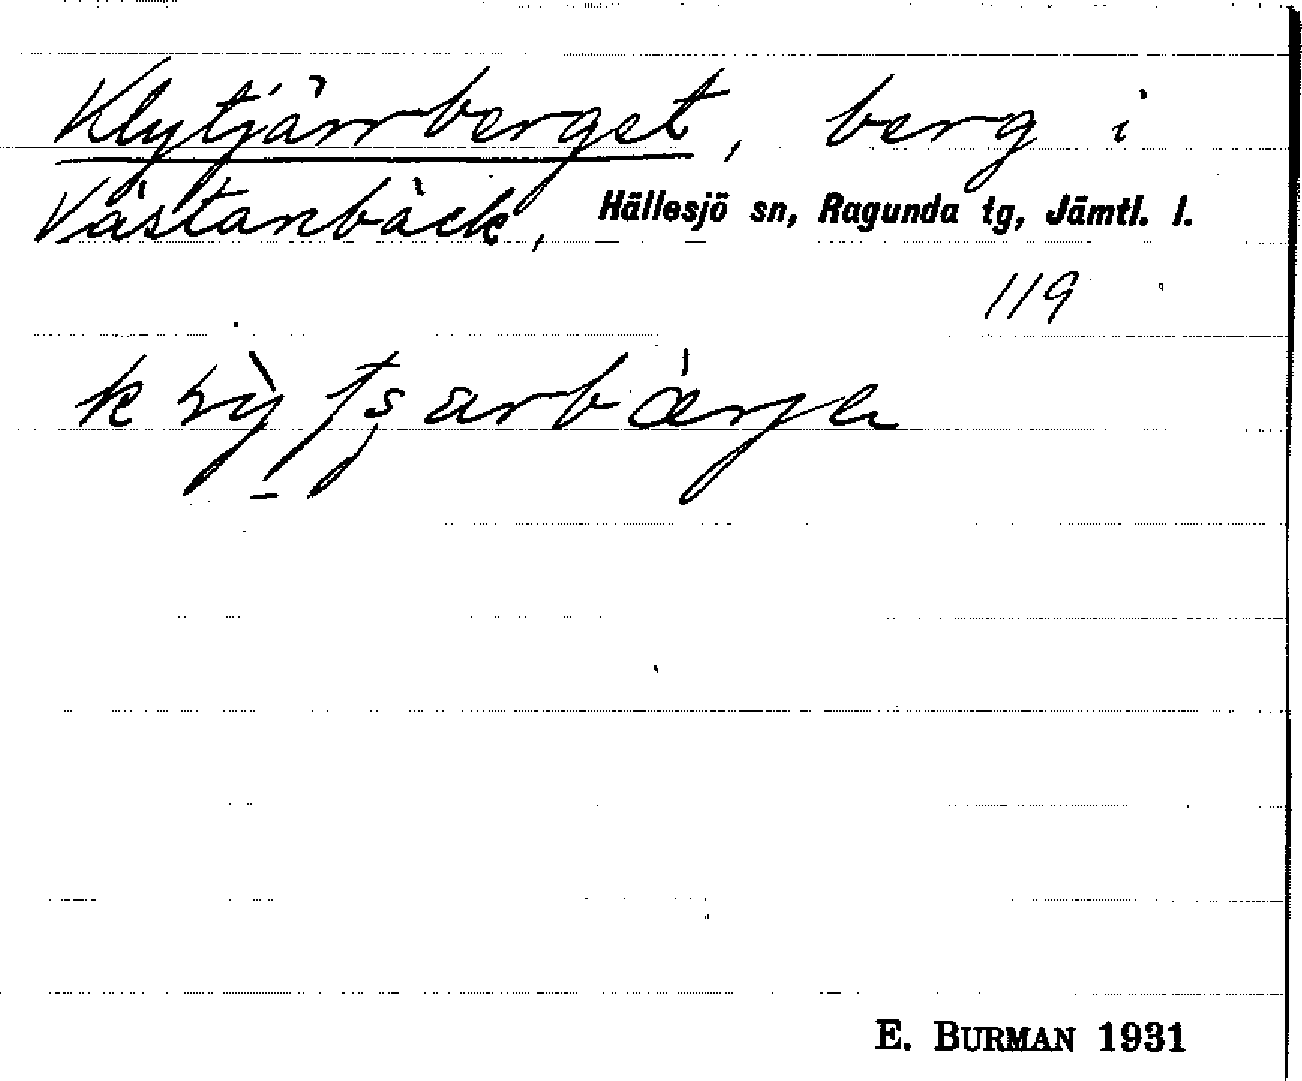 Klytjärrberget, berg i
Västanbäck, Hällesjö sn, Ragunda tg, Jämtl. l.
119
E. BURMAN 1931